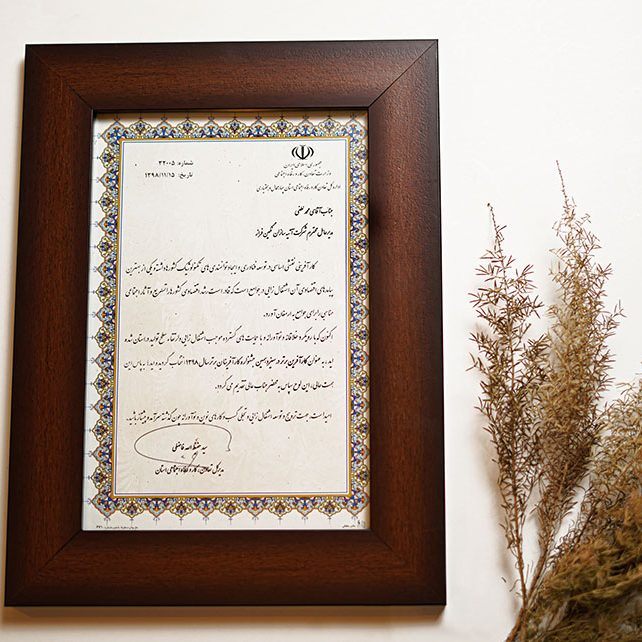 جمهوری اسلامی ایران
وزارت تعاون، کار و رفاه اجتماعی
اداره کل تعاون، کار و رفاه اجتماعی استان چهارمحال و بختیاری
شماره: ۳۲۰۰۵
تاریخ: ۱۳۹۸/۱۱/۱۵
جناب آقای محمد
مدیرعامل محترم شرکت آتیه سازان نگین فرانه
کارآفرینی نقشی اساسی در توسعه فناوری و ایجاد توانمندی های تکنولوژیک کشورها داشته و یکی از بهترین
پیامدهای اقتصادی آن اشتغال زایی در جوامع است که قادر است رشد اقتصادی کشورها را تسریع و آثار اجتماعی
مناسبی را برای جوامع به ارمغان آورد.
اکنون که با رویکرد خلاقانه و نوآورانه و با حمایت های گسترده موجب اشتغال زایی و ارتقاء سطح تولید در استان شده و
اید، به عنوان کارآفرین برتر در سیزدهمین جشنواره کارآفرینان برتر سال ۱۳۹۸ انتخاب گردیده اید، به پاس این
همت عالی، این لوح سپاس به محضر جناب عالی تقدیم می گردد.
امید است در جهت ترویج و توسعه اشتغال زایی و تجلی کسب و کارهای نوین و نوآورانه چون گذشته سرآمد و پیشتاز باشید.
سید حفظ اله فاضلی
مدیرکل تعاون، کار و رفاه اجتماعی استان